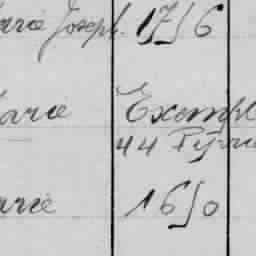 arie Joseph. 1756
arie Exempt
44 P
arie 1650